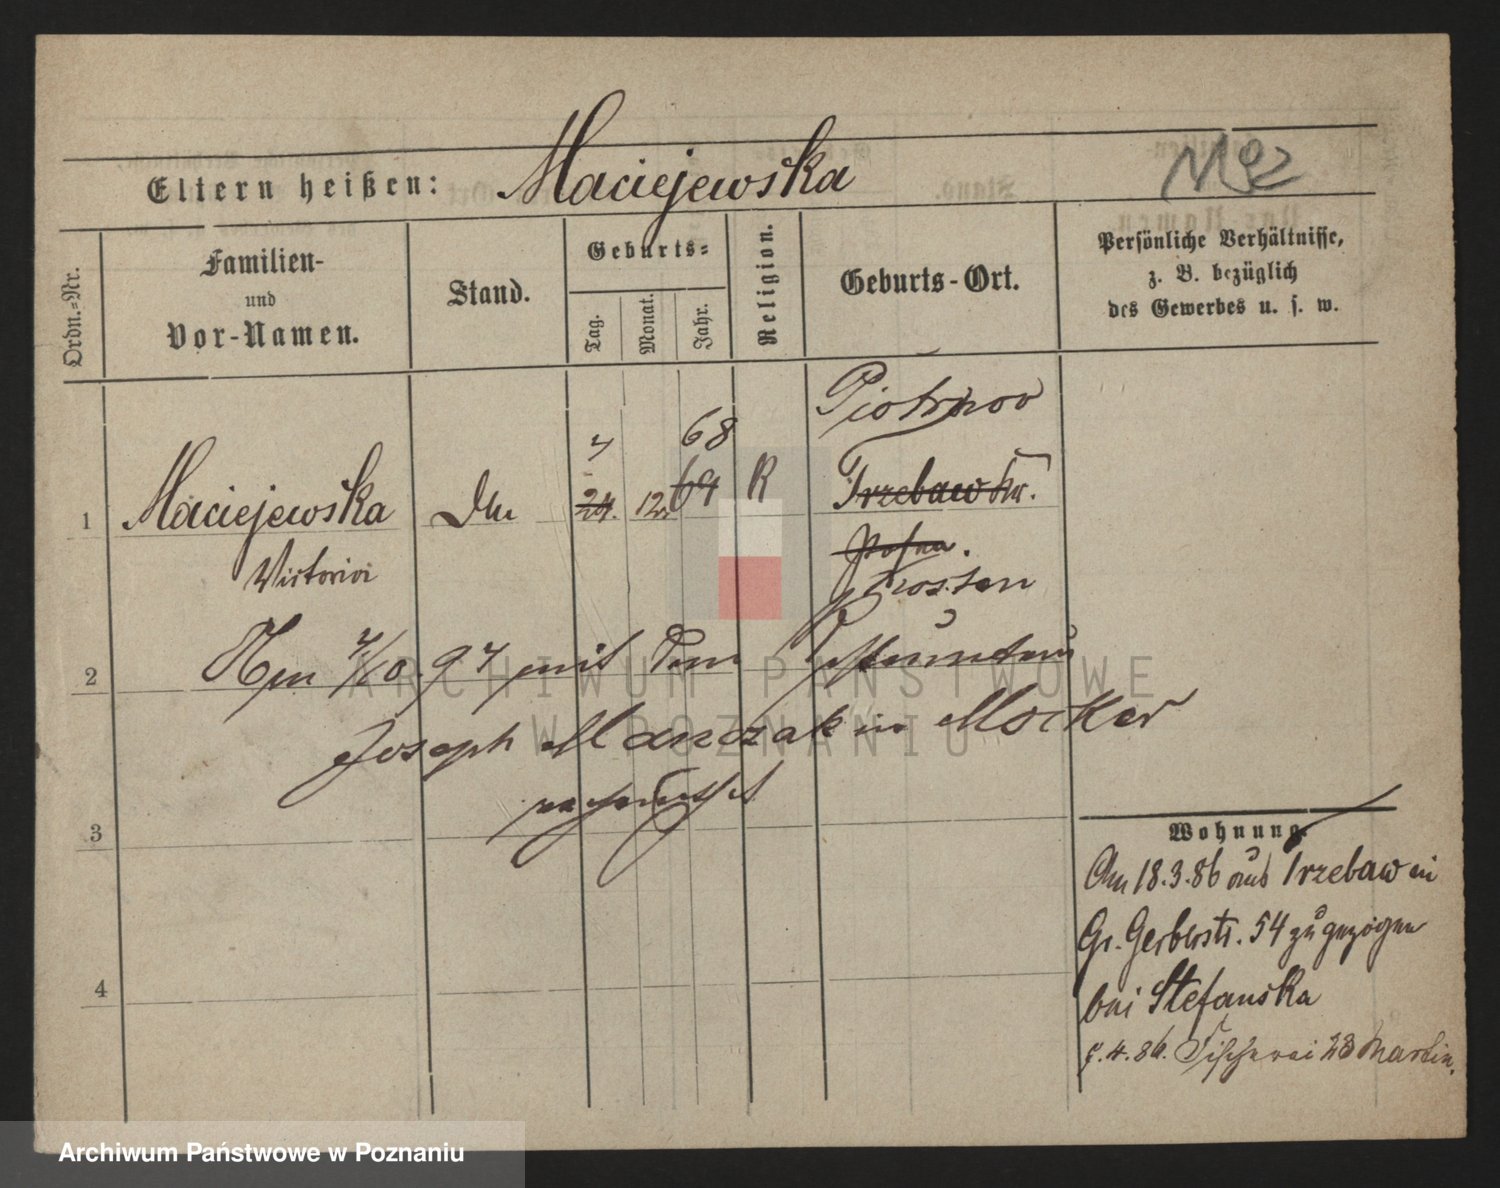 Eltern heißen: Maciejewska
Ordn.-Nr.
Familien-
und
Vor-Namen.
Stand.
Geburts-
Tag.
Monat.
Jahr.
Religion.
Geburts-Ort.
Persönliche Verhältnisse,
z. B. bezüglich
des Gewerbes u. s. w.
Piotrowo
7 68
1 Maciejewska 24. 12. 69 R Trzebaw Kr.
Posen.
Victoria Krosten
2 Am 7/10. 97 mit dem
Joseph Manczak in Mocker
3
Wohnung.
Am 18.3.86 aus Trzebaw in
Gr. Gerberstr. 54 zugezogen
4
bei Stefanska
4.86. Fischerei 28 Martin.
ARCHIWUM PAŃSTWOWE
W POZNANIU
Archiwum Państwowe w Poznaniu